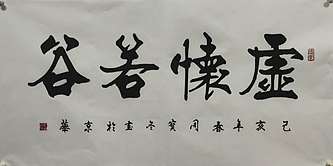 虛懷若谷
己亥年春月冬書於京華